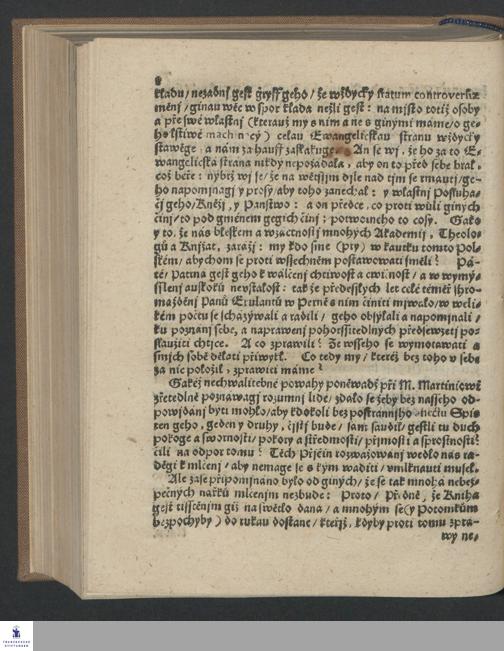 8
kladu / nezadnj gest gryff geho / že wždycky statum controversiæ
měnj / ginau wěc w spor klada nežli gest: na mjsto totiž osoby
a pře swé wlastnj (kterauž my s njm a ne s ginými máme / o ge-
ho lstiwé machinacý) celau Ewangelickau stranu wždycky
stawěge a nám za hauff zaskakuge. An se wj, že ho za to E-
wangelická strana nikdy nepožádala, aby on to před sebe bral,
což béře: nýbrž wj se / že na wětšjm djle nad tjm se rmautj / ge-
ho napomjnagj y prosý / aby toho zanechal: y wlastnj Posluha-
čj geho / Kněžj, y Panstwo: a on předce, co proti wůli giných
činj / to pod gménem gegich činj; potworného to cosy. Gako
y to, že nás bleskem a wzáctnostj mnohých Akademij, Theolo-
gů a Knjžat, zarážj: my kdo sme (prý) w kautku tomto Pol-
ském / abychom se proti wssechněm postawowati směli? Pá-
té / Patrná gest geho k wálčenj chtiwost a cwičnost / a w wymý-
sslenj auskoků neustálost: tak že předesslých let celé téměř shro-
máždenj Panů Exulantů w Perně s njm činiti mjwalo / w weli-
kém počtu se scházýwali a radili / geho obsýlali a napomjnali /
ku poznánj sebe, a naprawenj pohorssitedlných předsewzetj po-
slaužiti chtjce. A co zprawili? Že wsseho se wymotáwati a
smjch sobě dělati přiwykl. Co tedy my / kteréž bez toho v sebe
za nic položil, zprawiti máme?
Gakéž nechwalitebné powahy poněwadž při M. Martiniowi
zřetedlně poznáwagj rozumnj lidé / zdálo se žeby bez nasseho od-
powjdánj býti mohlo / aby kdokoli bez postrannjho affectu Spis
ten geho, geden y druhý, čjsti bude / sám saudil / gestli tu duch
pokoge a swornosti / pokory a střednosti / přjmosti a sprostnosti?
čili na odpor tomu? Těch Přjčin rozwažowánj wedlo nás ra-
děgi k mlčenj / aby nemage se s kým waditi / vmlknauti musel.
Ale zase připomjnáno bylo od giných / že se tak mnohá nebez-
pečných nářků mlčenjm nezbude: Proto / Předně, že Kniha
gest tisstěnjm giž na swětlo dána / a mnohým se (y Potomkům
bezpochyby) do rukau dostane / kteřjž, kdyby proti tomu zprá-
wy ne-